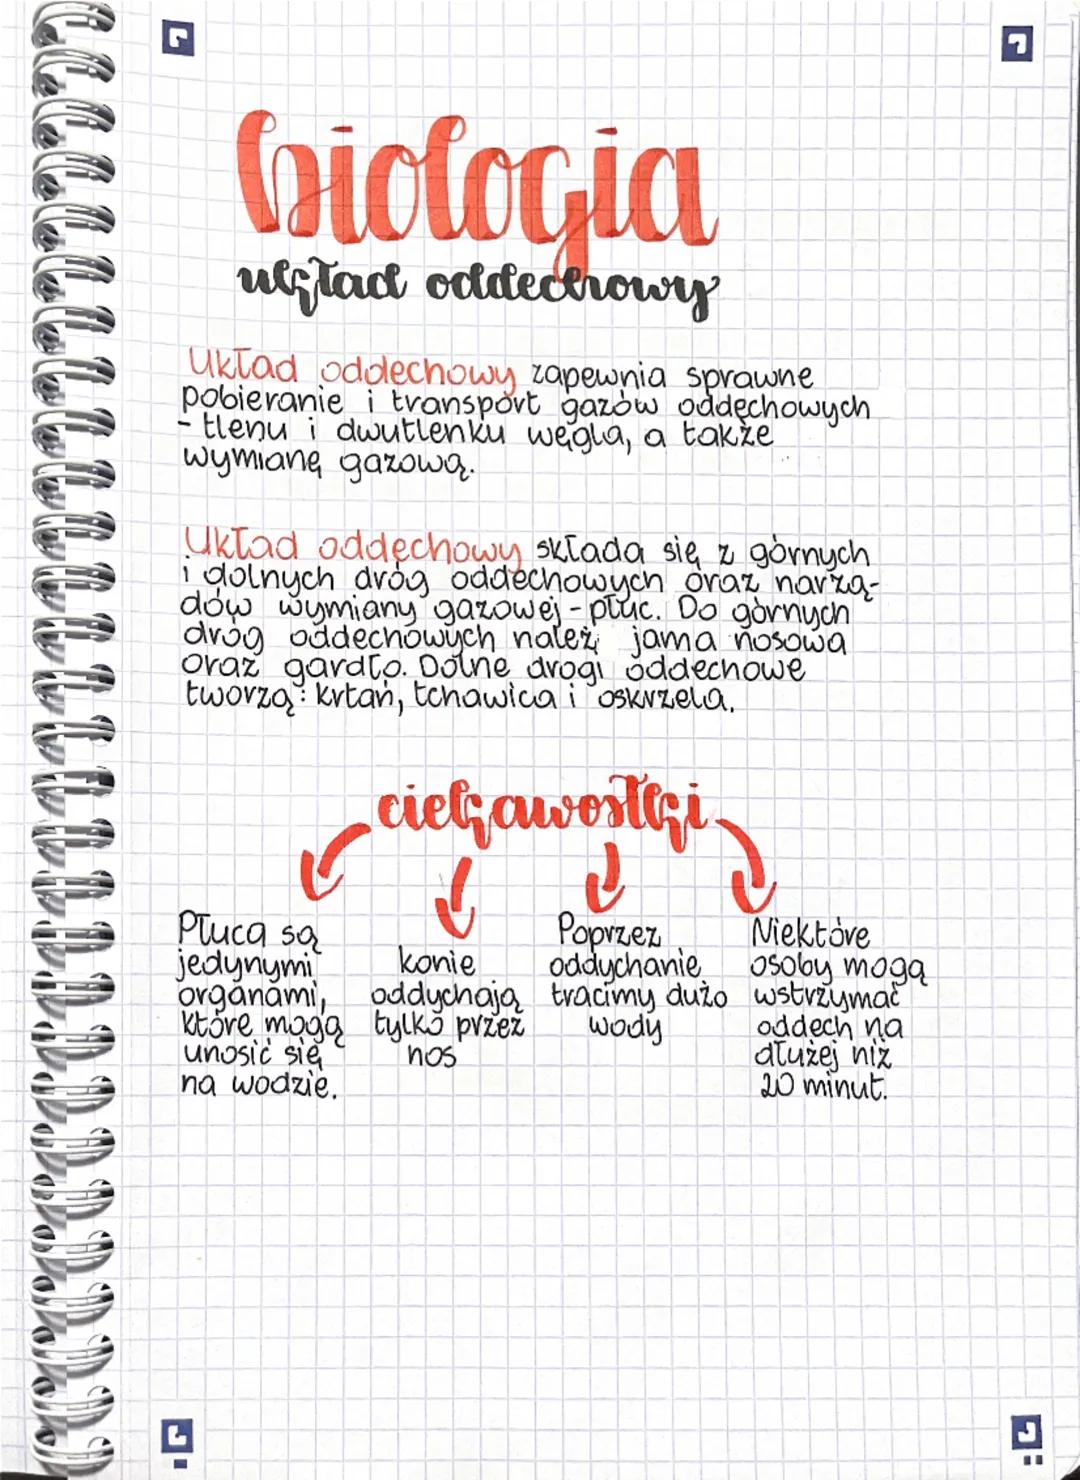 biologia
układ oddechowy
Układ oddechowy zapewnia sprawne
pobieranie i transport gazów oddechowych
- tlenu i dwutlenku węgla, a także
wymianę gazową.
Układ oddechowy składa się z górnych
i dolnych dróg oddechowych oraz narzą-
dów wymiany gazowej - płuc. Do górnych
dróg oddechowych należy jama nosowa
oraz gardło. Dolne drogi oddechowe
tworzą: krtań, tchawica i oskrzela.
ciekawostki
Płuca są
jedynymi
organami,
które mogą
unosić się
na wodzie.
konie
oddychają
tylko przez
nos
Poprzez
oddychanie
tracimy dużo
wody
Niektóre
osoby mogą
wstrzymać
oddech na
dłużej niż
20 minut.